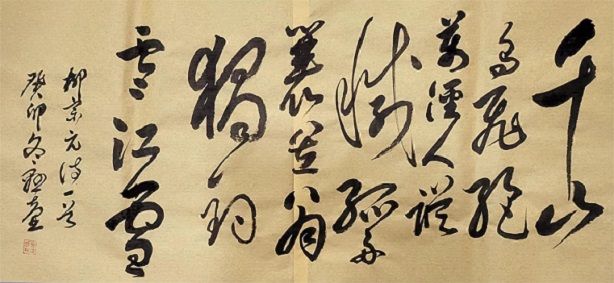 千山
鳥飛絕
萬徑人蹤
滅孤舟
蓑笠翁
獨釣
寒江雪
柳宗元詩一首
癸卯冬